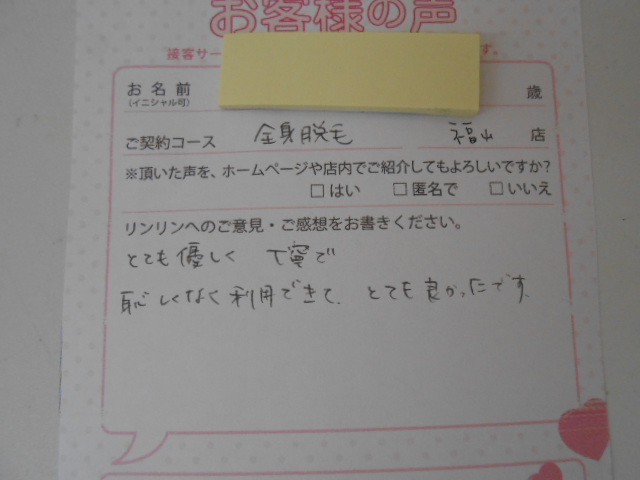 お客様の声
接客サー
す。
お名前
歳
(イニシャル可)
ご契約コース 全身脱毛 福山 店
※頂いた声を、ホームページや店内でご紹介してもよろしいですか?
□はい □匿名で □いいえ
リンリンへのご意見・ご感想をお書きください。
とても優しく 丁寧で
恥しくなく利用できて、とても良かったです。